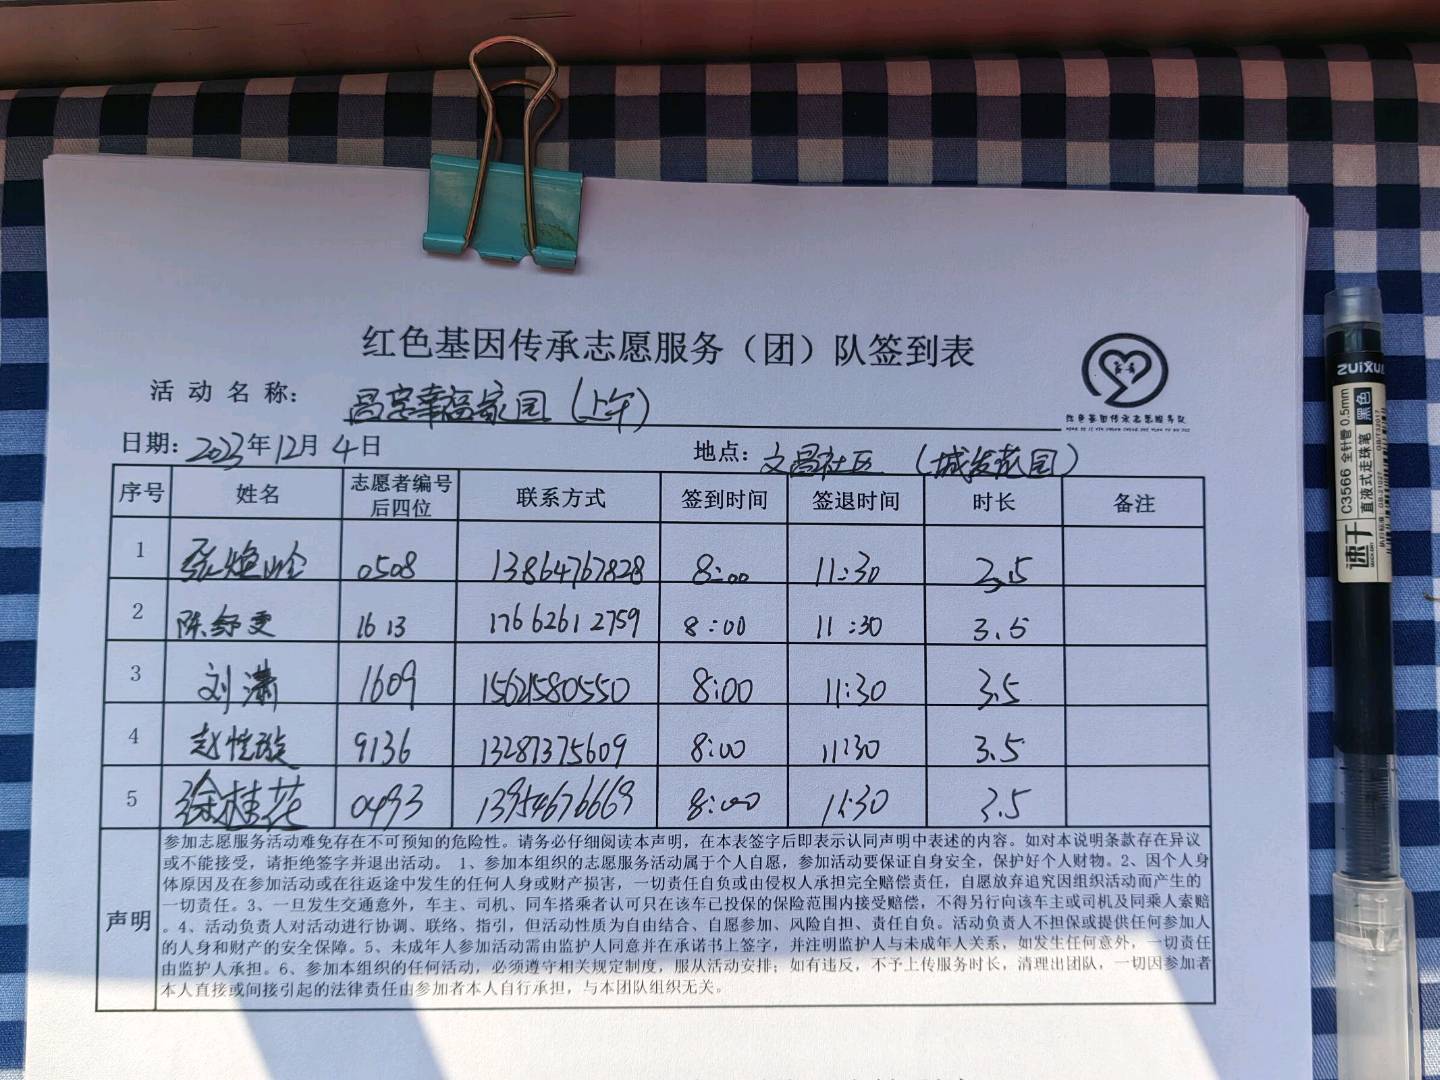 红色基因传承志愿服务（团）队签到表
活动名称： 昌空幸福家园（上午）
红色基因传承志愿服务队
日期：2023年12月4日 地点：文昌社区（城发花园）
序号 姓名 志愿者编号后四位 联系方式 签到时间 签退时间 时长 备注
1 张 0508 13864767828 8:00 11:30 3.5
2 陈 1613 17662612759 8:00 11:30 3.5
3 刘潇 1609 15621580550 8:00 11:30 3.5
4 赵恺璇 9136 13287375609 8:00 11:30 3.5
5 徐桂花 0493 13954676669 8:00 11:30 3.5
声明
参加志愿服务活动难免存在不可预知的危险性。请务必仔细阅读本声明，在本表签字后即表示认同声明中表述的内容。如对本说明条款存在异议
或不能接受，请拒绝签字并退出活动。 1、参加本组织的志愿服务活动属于个人自愿，参加活动要保证自身安全，保护好个人财物。2、因个人身
体原因及在参加活动或在往返途中发生的任何人身或财产损害，一切责任自负或由侵权人承担完全赔偿责任，自愿放弃追究因组织活动而产生的
一切责任。3、一旦发生交通意外，车主、司机、同车搭乘者认可只在该车已投保的保险范围内接受赔偿，不得另行向该车主或司机及同乘人索赔
。4、活动负责人对活动进行协调、联络、指引，但活动性质为自由结合、自愿参加、风险自担、责任自负。活动负责人不担保或提供任何参加人
的人身和财产的安全保障。5、未成年人参加活动需由监护人同意并在承诺书上签字，并注明监护人与未成年人关系，如发生任何意外，一切责任
由监护人承担。6、参加本组织的任何活动，必须遵守相关规定制度，服从活动安排；如有违反，不予上传服务时长，清理出团队，一切因参加者
本人直接或间接引起的法律责任由参加者本人自行承担，与本团队组织无关。
ZUiXUA
速干 C3566 全针管 0.5mm
直液式走珠笔 黑色